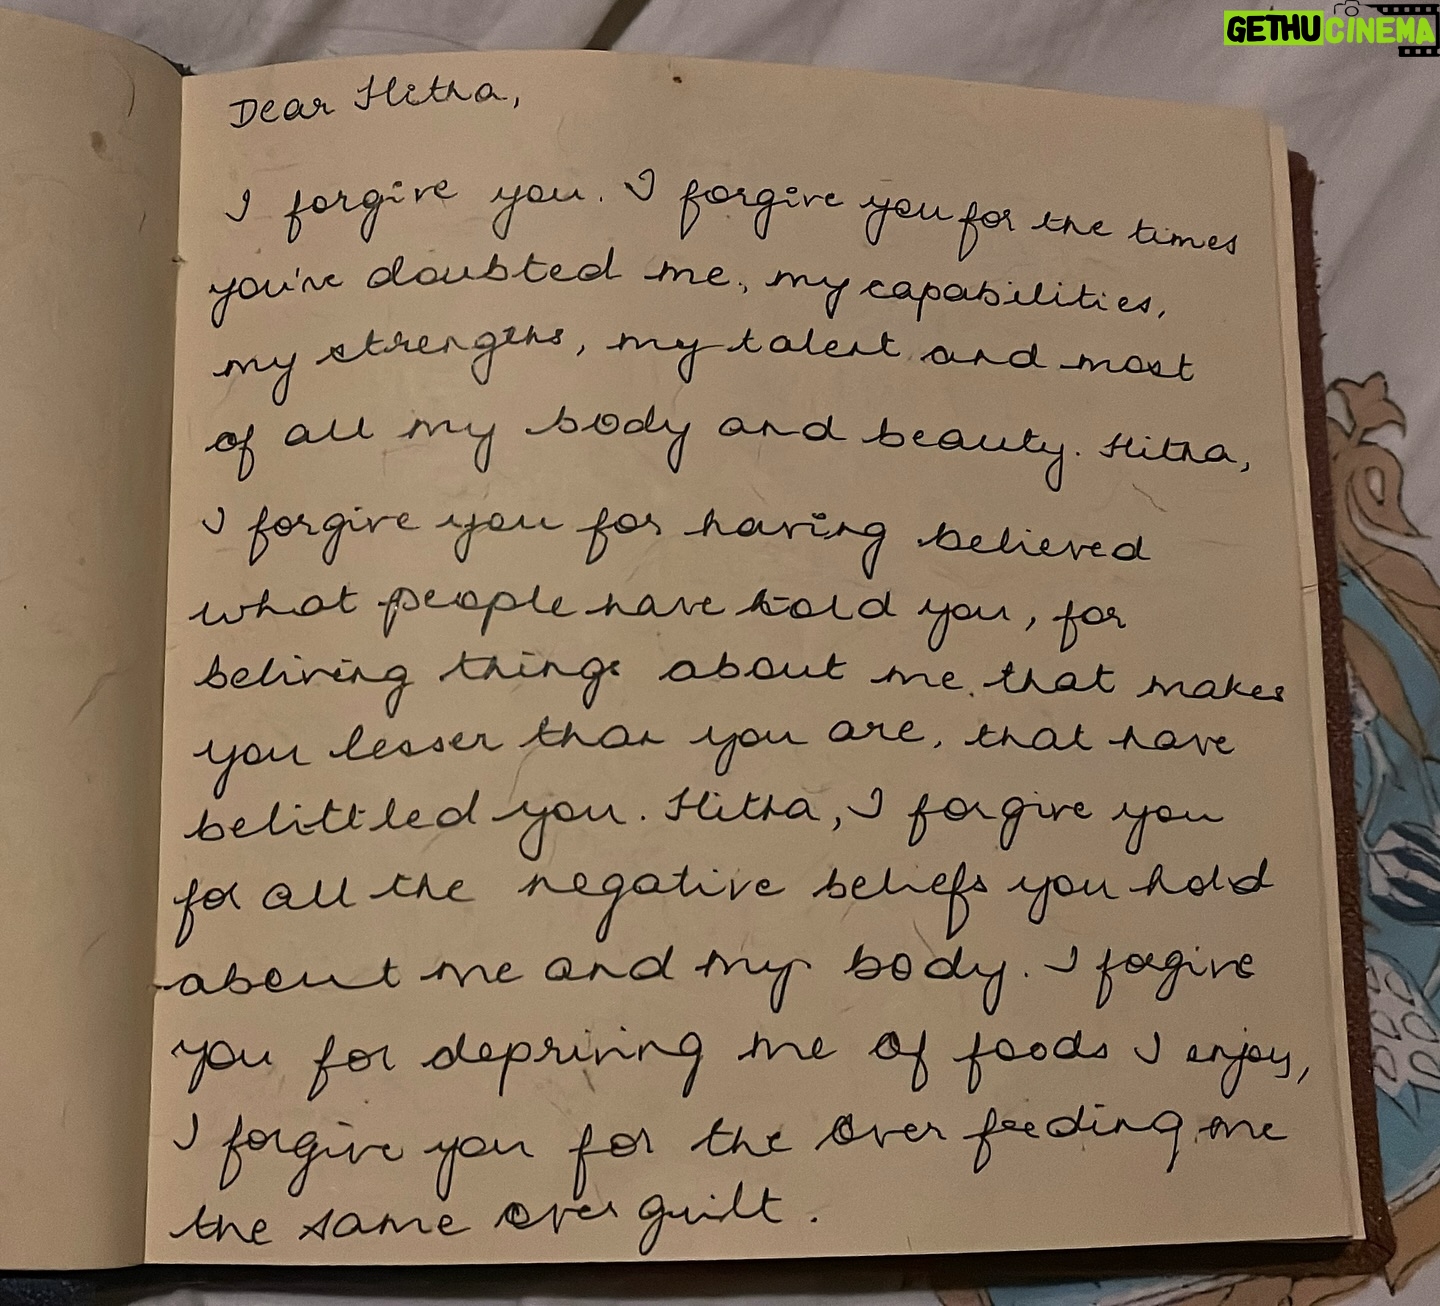 GETHU CINEMA
Dear Hitha,
I forgive you. I forgive you for the times
you've doubted me, my capabilities,
my strengths, my talent and most
of all my body and beauty. Hitha,
I forgive you for having believed
what people have told you, for
beliving things about me that makes
you lesser than you are, that have
belittled you. Hitha, I forgive you
for all the negative beliefs you hold
about me and my body. I forgive
you for depriving me of foods I enjoy,
I forgive you for the over feeding me
the same over guilt.